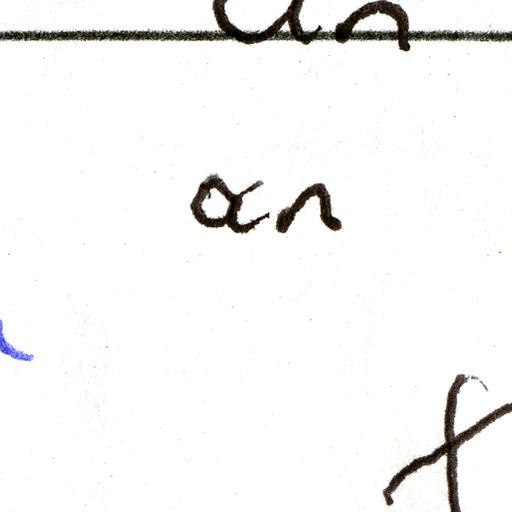 an
an